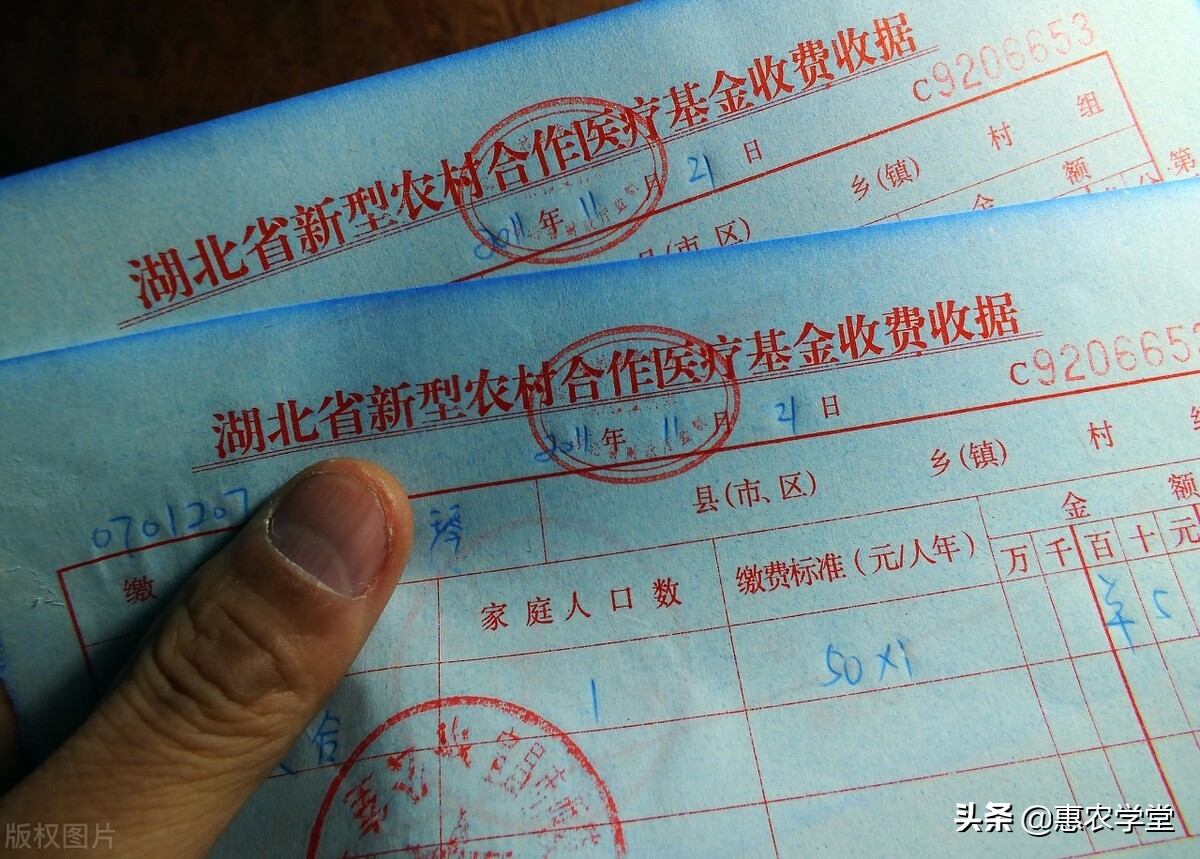 湖北省新型农村合作医疗基金收费收据
C9206653
2011年11月21日
乡(镇) 村 组
(市、区)
金 额
第
湖北省新型农村合作医疗基金收费收据
C920665
2011年11月21日
0701207
琴
县(市、区) 乡(镇) 村
缴
家庭人口数
缴费标准(元/人年)
金 额
万 千 百 十 元
1
50×1
羊 5
合
头条 @惠农学堂
版权图片